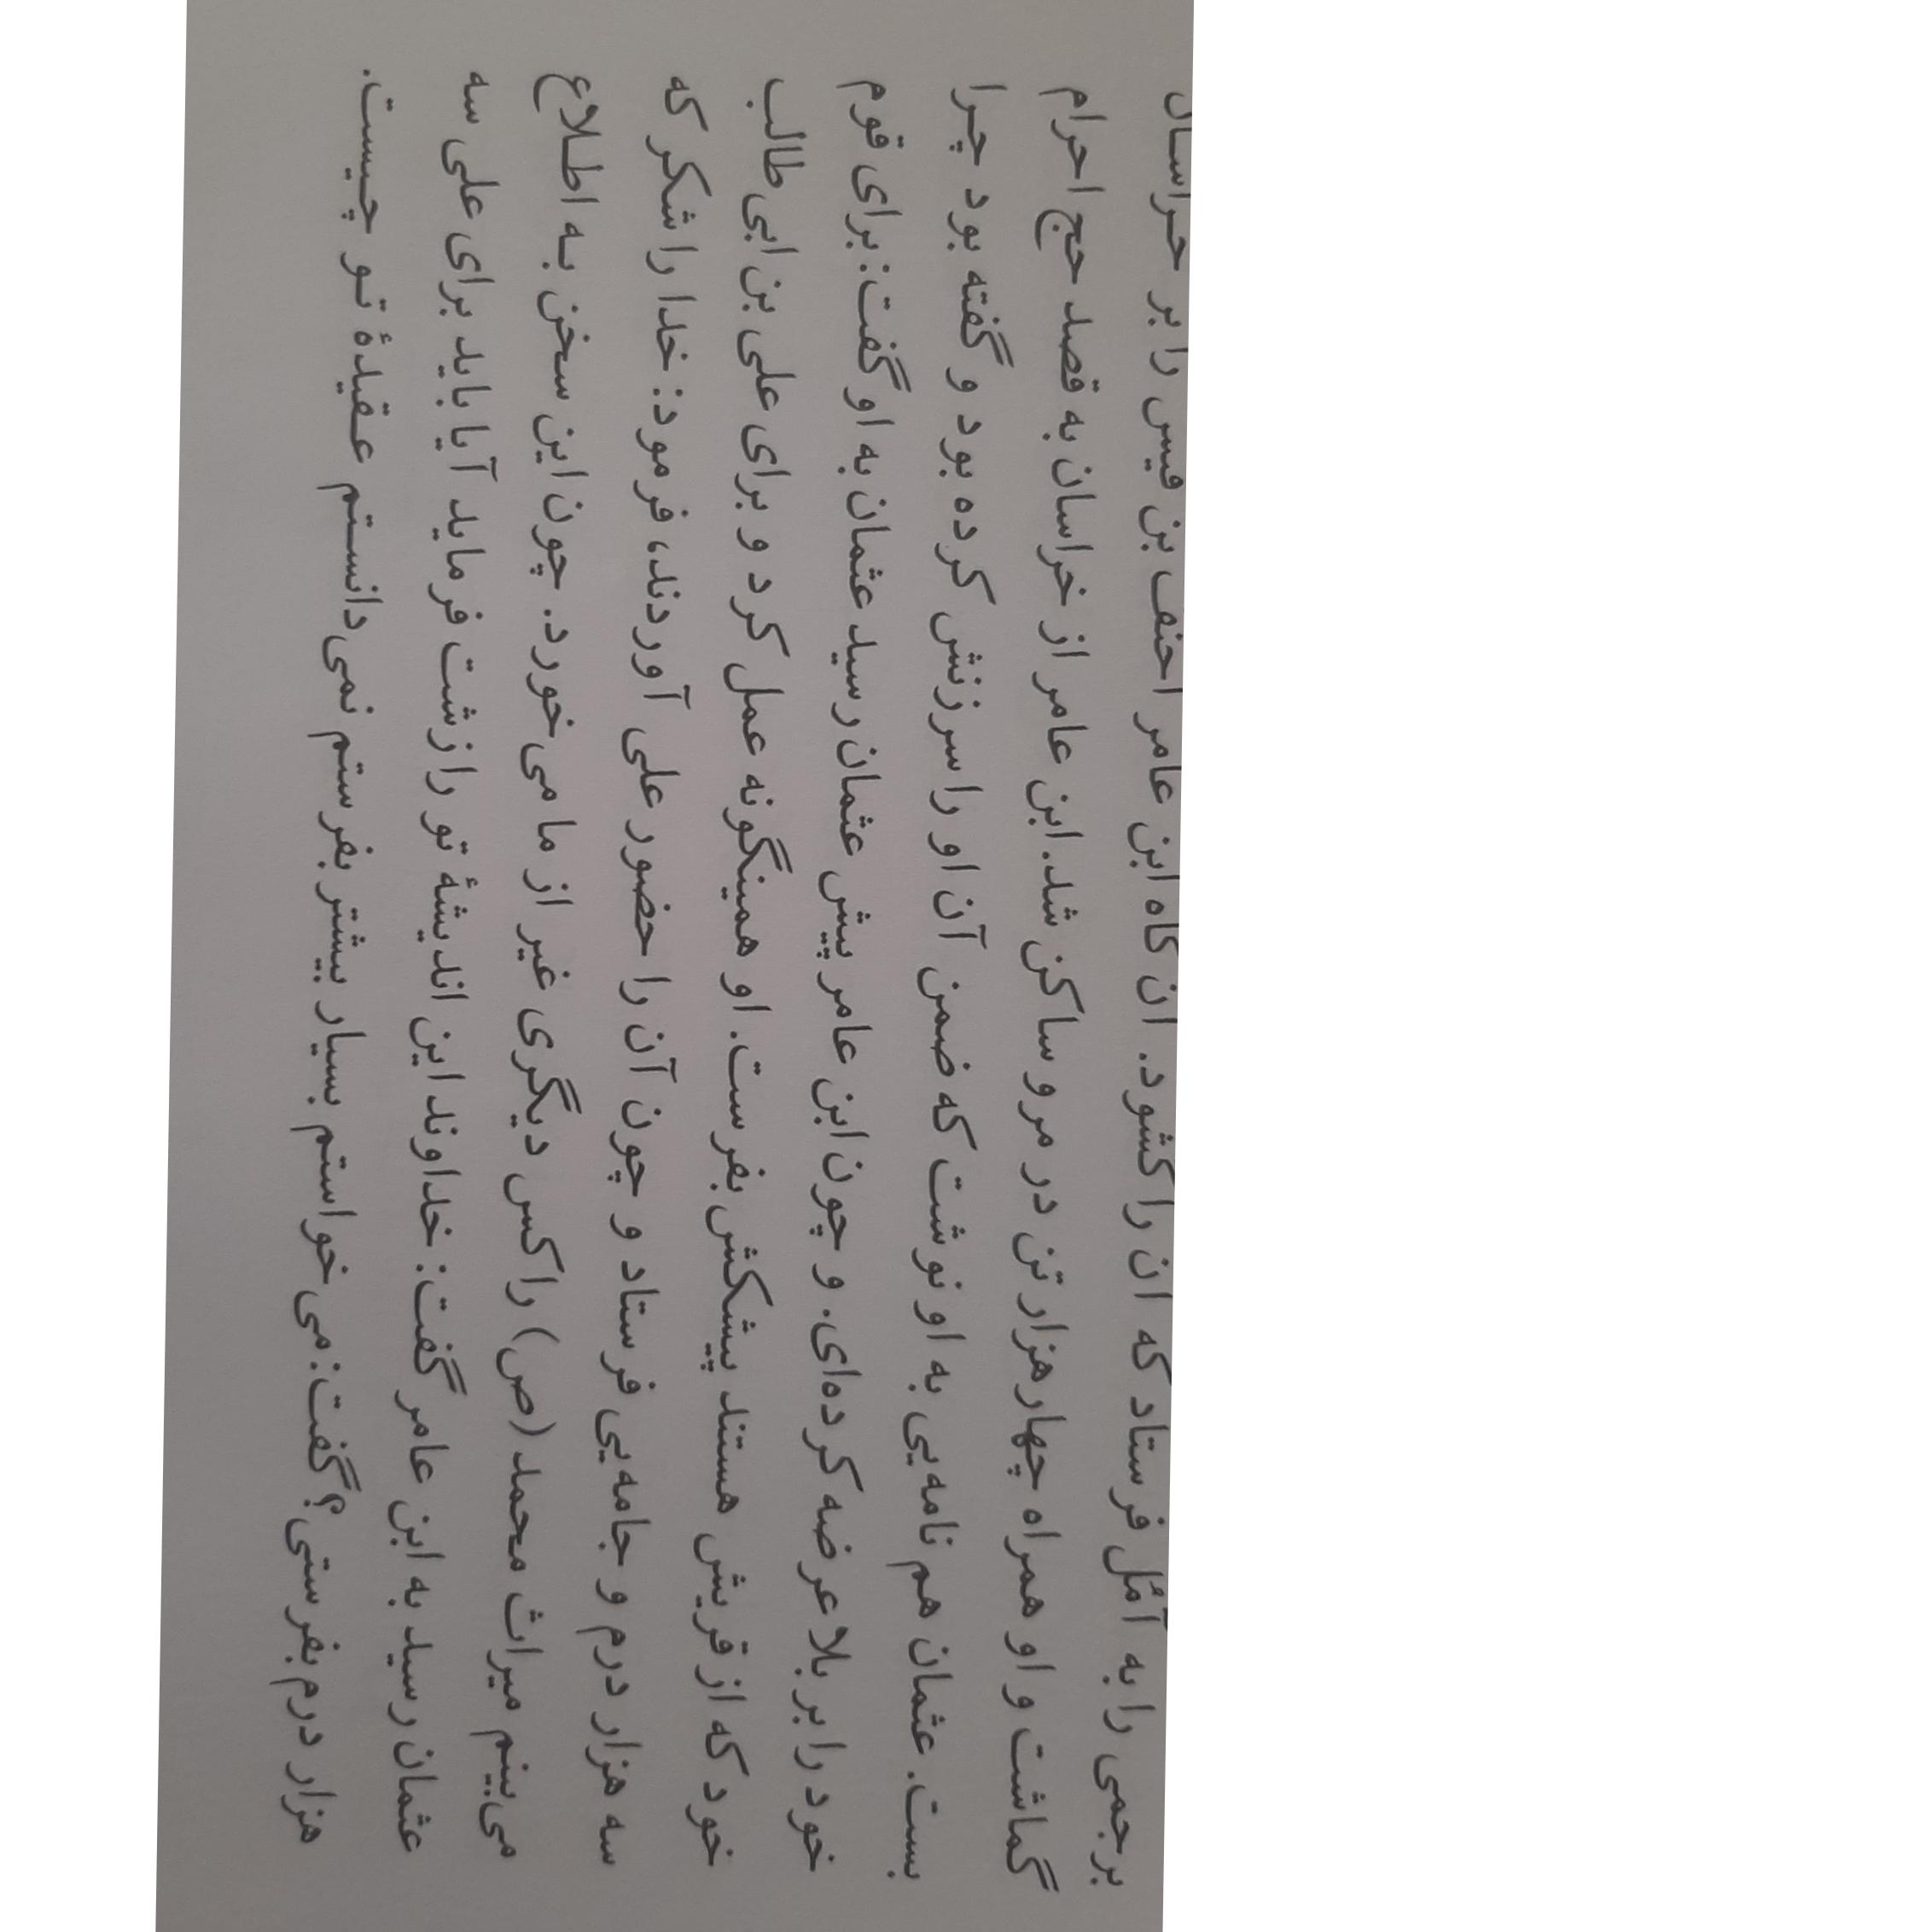 برجمی را به آمُل فرستاد که آن را گشود. آن گاه ابن عامر احنف بن قیس را بر خراسان
گماشت و او همراه چهار هزار تن در مرو ساکن شد. ابن عامر از خراسان به قصد حج احرام
بست. عثمان هم نامه‌یی به او نوشت که ضمن آن او را سرزنش کرده بود و گفته بود چرا
خود را بر بلا عرضه کرده‌ای. و چون ابن عامر پیش عثمان رسید عثمان به او گفت: برای قوم
خود که از قریش هستند پیشکش بفرست. او همینگونه عمل کرد و برای علی بن ابی طالب
سه هزار درم و جامه‌یی فرستاد و چون آن را حضور علی آوردند، فرمود: خدا را شکر که
می‌بینم میراث محمد (ص) را کس دیگری غیر از ما می‌خورد. چون این سخن به اطلاع
عثمان رسید به ابن عامر گفت: خداوند این اندیشهٔ تو را زشت فرماید آیا باید برای علی سه
هزار درم بفرستی؟ گفت: می‌خواستم بسیار بیشتر بفرستم نمی‌دانستم عقیدهٔ تو چیست.